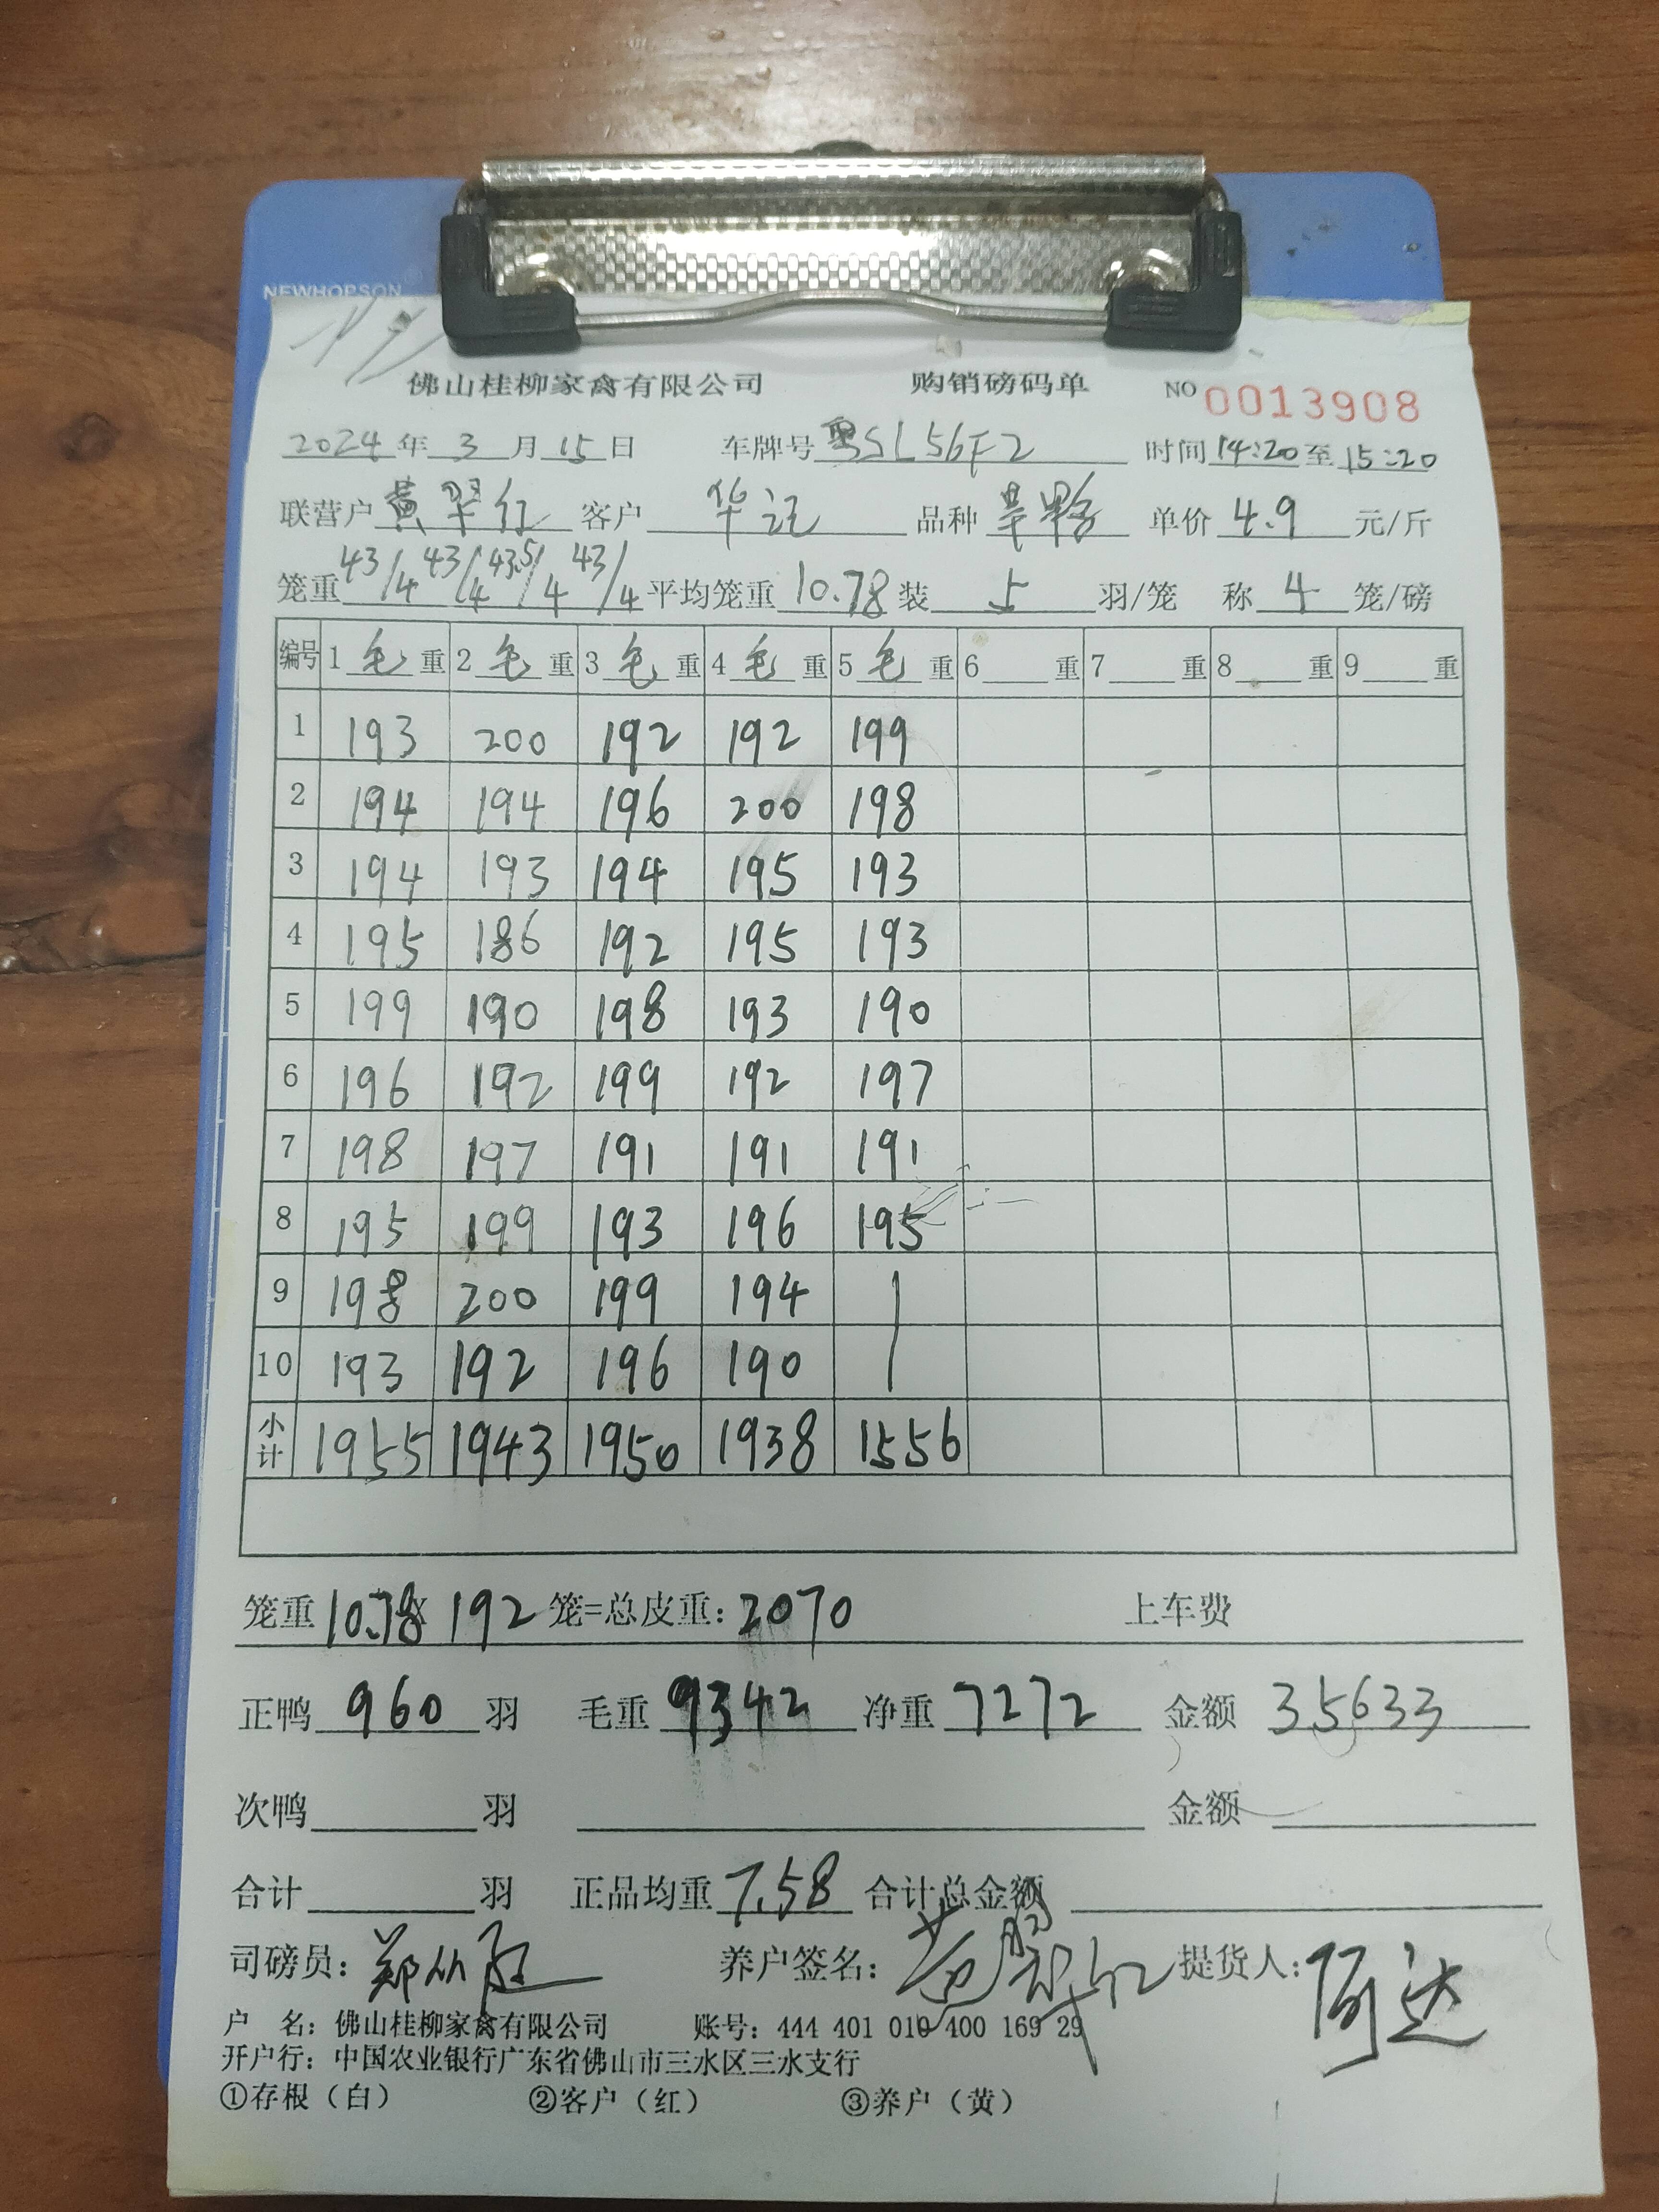 NEWHOPSON
佛山桂柳家禽有限公司 购销磅码单 NO 0013908
2024年3月15日 车牌号 粤SL56F2 时间 14:20 至 15:20
联营户 黄翠红 客户 华记 品种 单价 4.9 元/斤
笼重 43/4 43/4 43.5/4 43/4 平均笼重 10.78 装 5 羽/笼 称 4 笼/磅
编号 1 毛 重 2 毛 重 3 毛 重 4 毛 重 5 毛 重 6 重 7 重 8 重 9 重
1 193 200 192 192 199
2 194 194 196 200 198
3 194 193 194 195 193
4 195 186 192 195 193
5 199 190 198 193 190
6 196 192 199 192 197
7 198 197 191 191 191
8 195 199 193 196 195
9 198 200 199 194
10 193 192 196 190
小计 1955 1943 1950 1938 1556
笼重 10.78 X 192 笼=总皮重: 2070 上车费
正鸭 960 羽 毛重 9342 净重 7272 金额 35633
次鸭 羽 金额
合计 羽 正品均重 7.58 合计总金额
司磅员: 养户签名: 黄翠红 提货人: 阿达
户 名: 佛山桂柳家禽有限公司 账号: 444 401 010 400 169 29
开户行: 中国农业银行广东省佛山市三水区三水支行
①存根（白） ②客户（红） ③养户（黄）